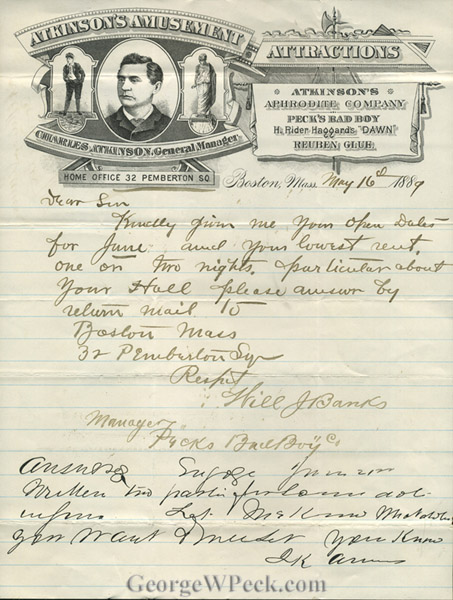 ATKINSON'S AMUSEMENT
ATTRACTIONS
ATKINSON'S
APHRODITE COMPANY
PECK'S BAD BOY
H. Rider Haggards "DAWN"
REUBEN GLUE.
CHARLES ATKINSON, General Manager
HOME OFFICE 32 PEMBERTON SQ.
Boston, Mass. May 16th 1889
Dear Sir
Kindly give me your open dates
for June and your lowest rent,
one or two nights, particular about
your Hall please answer by
return mail to
Boston Mass
32 Pemberton Sqr
Respt
Will J Banks
Manager
Pecks Bad Boy Co
Answered
Written two
Let me Know
you want you Know
GeorgeWPeck.com